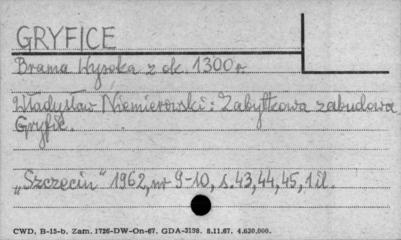 GRYFICE
Brama Wysoka z ok. 1300 r.
Władysław Niemierowski: Zabytkowa zabudowa
Gryfic.
„Szczecin" 1962, nr 9-10, s. 43, 44, 45, 1 il.
CWD, B-15-b. Zam. 1726-DW-On-67. GDA-3198. 8.11.67. 4.630.000.